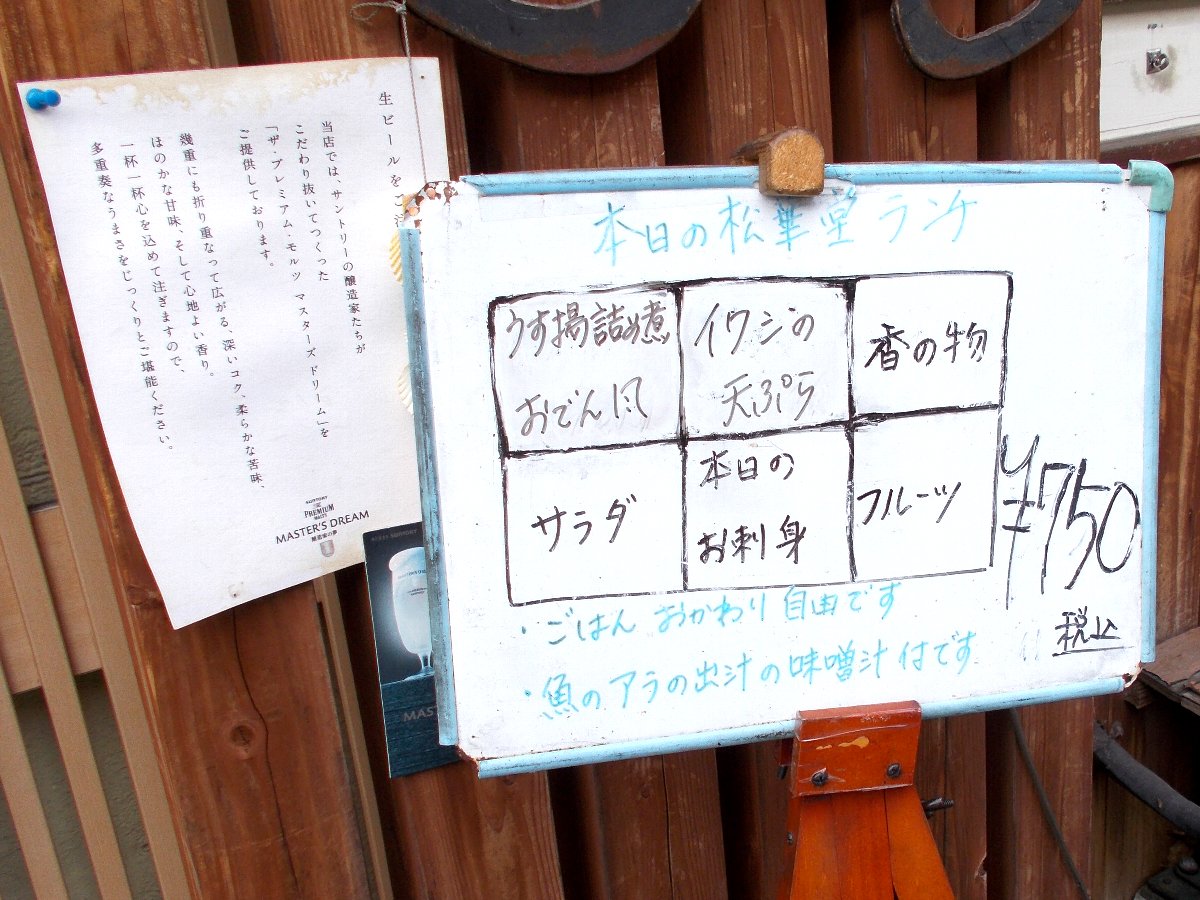 生ビールをご
当店では、サントリーの醸造家たちが
こだわり抜いてつくった
「ザ・プレミアム・モルツ マスターズドリーム」を
ご提供しております。
幾重にも折り重なって広がる、深いコク、柔らかな苦味、
ほのかな甘味、そして心地よい香り。
一杯一杯心を込めて注ぎますので、
多重奏なうまさをじっくりとご堪能ください。
SUNTORY
THE
PREMIUM
MALT'S
MASTER'S DREAM
醸造家の夢
MAS
本日の松華堂ランチ
うす揚詰め煮
おでん風
イワシの
天ぷら
香の物
サラダ
本日の
お刺身
フルーツ
¥750
税込
・ごはん おかわり 自由です
・魚のアラの出汁の味噌汁付です